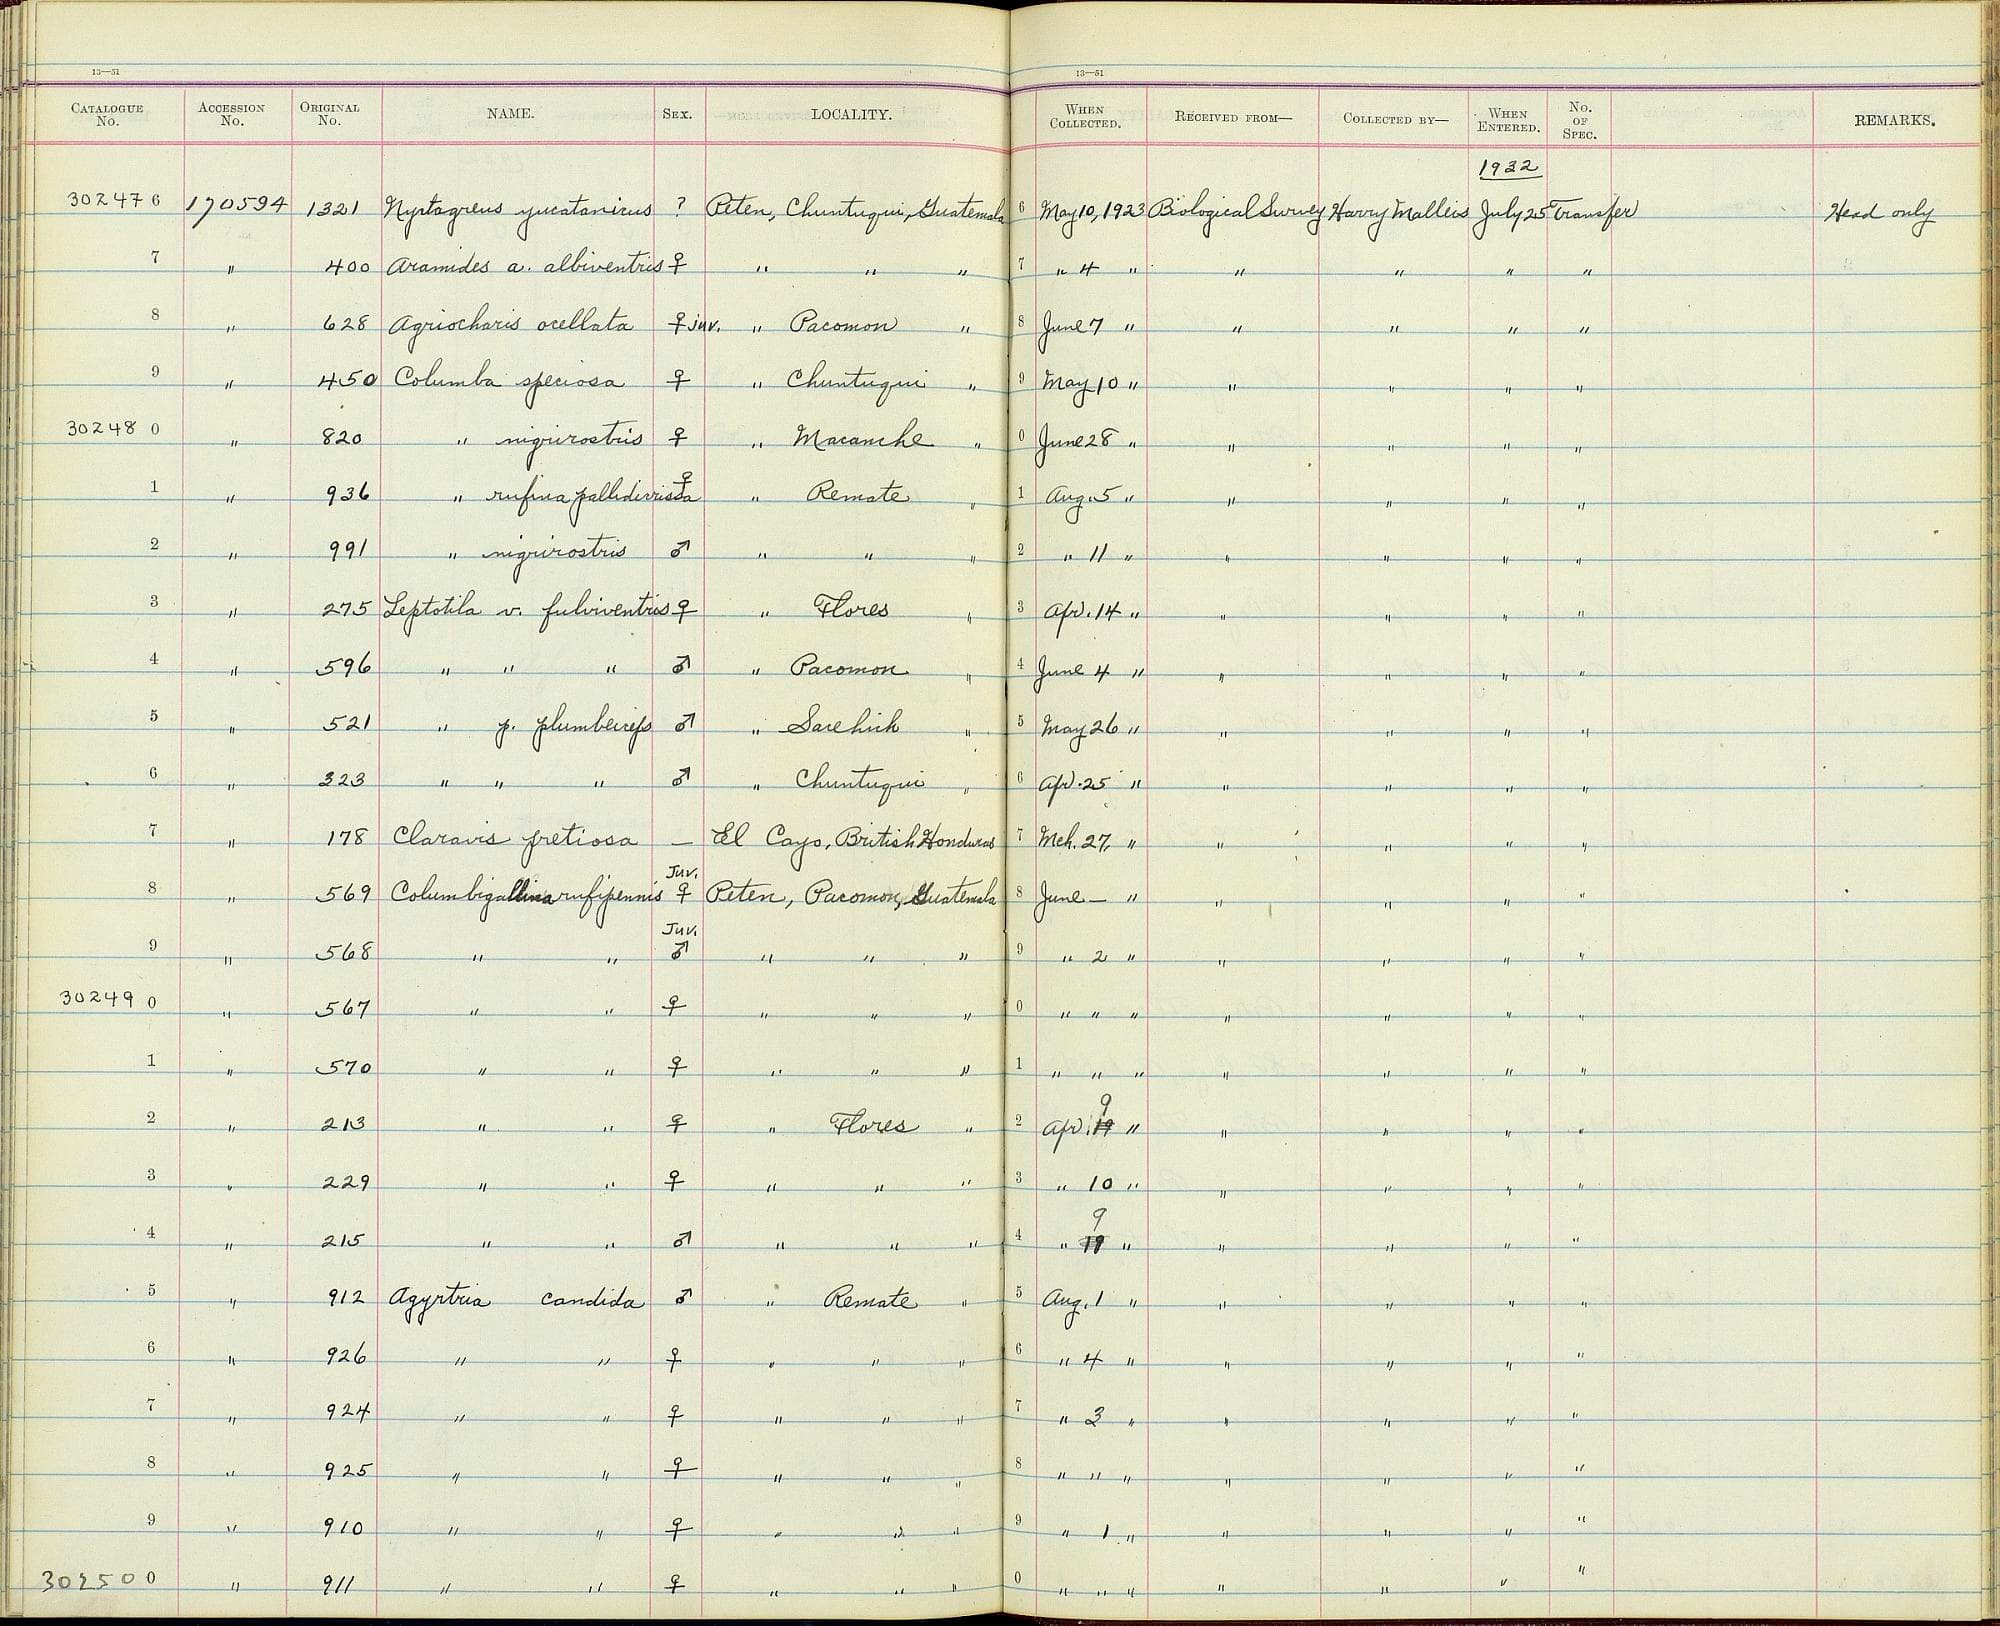 13—51 13—51
CATALOGUE No. ACCESSION No. ORIGINAL No. NAME. SEX. LOCALITY. WHEN COLLECTED. RECEIVED FROM— COLLECTED BY— WHEN ENTERED. No. OF SPEC. REMARKS.
1932
302476 170594 1321 Nyctagreus yucatanicus ? Peten, Chuntuqui, Guatemala 6 May 10, 1923 Biological Survey Harry Malleis July 25 Transfer Head only
7 " 400 Aramides a. albiventris ♀ " " " 7 " 4 " " " " "
8 " 628 Agriocharis ocellata ♀ juv. " Pacomon " 8 June 7 " " " " "
9 " 450 Columba speciosa ♀ " Chuntuqui " 9 May 10 " " " " "
302480 " 820 " nigrirostris ♀ " Macanche " 0 June 28 " " " " "
1 " 936 " rufina pallidicrissa ♀ " Remate " 1 Aug. 5 " " " " "
2 " 991 " nigrirostris ♂ " " " 2 " 11 " " " " "
3 " 275 Leptotila v. fulviventris ♀ " Flores " 3 Apr. 14 " " " " "
4 " 596 " " " ♂ " Pacomon " 4 June 4 " " " " "
5 " 521 " p. plumbeiceps ♂ " Sacchich " 5 May 26 " " " " "
6 " 323 " " " ♂ " Chuntuqui " 6 Apr. 25 " " " " "
7 " 178 Claravis pretiosa — El Cayo, British Honduras 7 Mch. 27, " " " " "
8 " 569 Columbigallina rufipennis Juv. ♀ Peten, Pacomon, Guatemala 8 June — " " " " "
9 " 568 " " Juv. ♂ " " " 9 " 2 " " " " "
302490 " 567 " " ♀ " " " 0 " " " " " " "
1 " 570 " " ♀ " " " 1 " " " " " " "
2 " 213 " " ♀ " Flores " 2 Apr. 9 " " " " "
3 " 229 " " ♀ " " " 3 " 10 " " " " "
4 " 215 " " ♂ " " " 4 " 9 " " " " "
5 " 912 Agyrtria candida ♂ " Remate " 5 Aug. 1 " " " " "
6 " 926 " " ♀ " " " 6 " 4 " " " " "
7 " 924 " " ♀ " " " 7 " 3 " " " " "
8 " 925 " " ♀ " " " 8 " " " " " " "
9 " 910 " " ♀ " " " 9 " 1 " " " " "
302500 " 911 " " ♀ " " " 0 " " " " " " "